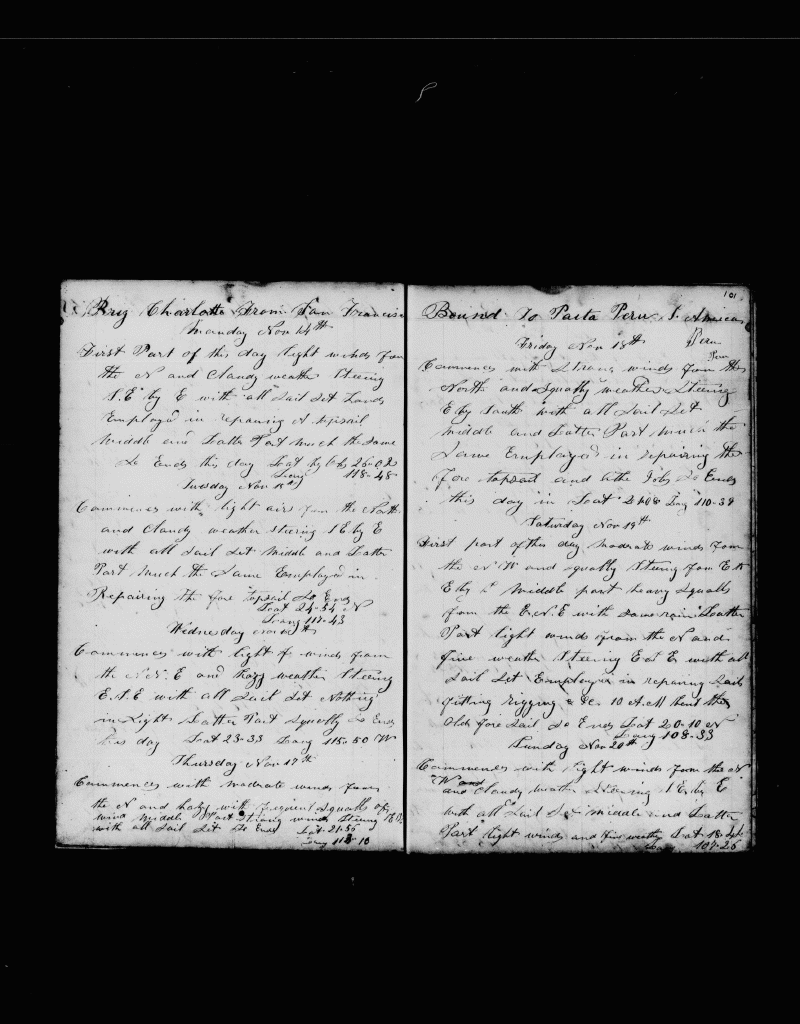 Brig Charlotte From San Francisco
Monday Nov 14th
First Part of this day light winds from
the N and Claudy weather Steering
S.E by E with all Sail Set Hands
Employed in repairing topsail
Middle and Latter Part Much the Same
So Ends this day Lat by Obs 26-02
Long 118-48
Tuesday Nov 15th
Commences with light airs from the North
and Claudy weather steering S E by E
with all Sail Set Middle and Latter
Part Much the Same Employed in
Repairing the fore topsail So Ends
Lat 24-54 N
Long 117-43
Wednesday Nov 16th
Commences with light winds from
the N.N.E and hazy weather Steering
E.S.E with all Sail Set Nothing
in Sight Latter Part Squally So Ends
this day Lat 23-33 Long 115-50 W
Thursday Nov 17th
Commences with modrate winds from
the N and hazy with frequent Squalls of
wind Middle Part Strong winds Steering
with all Sail Set So Ends Lat 21-56
Long 113-10
101
Bound To Paita Peru S. America
Peru
Friday Nov 18th
Commences with Strong winds from the
North and Squally weather Steering
E by South with all Sail Set
Middle and Latter Part Much the
Same Employed in repairing the
Fore topsail and other Jobs So Ends
this day in Lat 21-08 Long 110-39
Saturday Nov 19th
First part of this day Modrate winds from
the N W and squally Steering from E to
E by S Middle part heavy Squalls
from the E.N.E with some rain Latter
Part light winds from the N and
fine weather Steering E S E with all
Sail Set Employed in repairing Sails
fitting rigging &c. 10 A.M bent the
Old fore Sail So Ends Lat 20-10 N
Long 108-33
Sunday Nov 20th
Commences with light winds from the N
W and
and Claudy weather Steering S E by E
with all Sail Set Middle and Latter
Part light winds and fine weather Lat 18-
Long 107-26